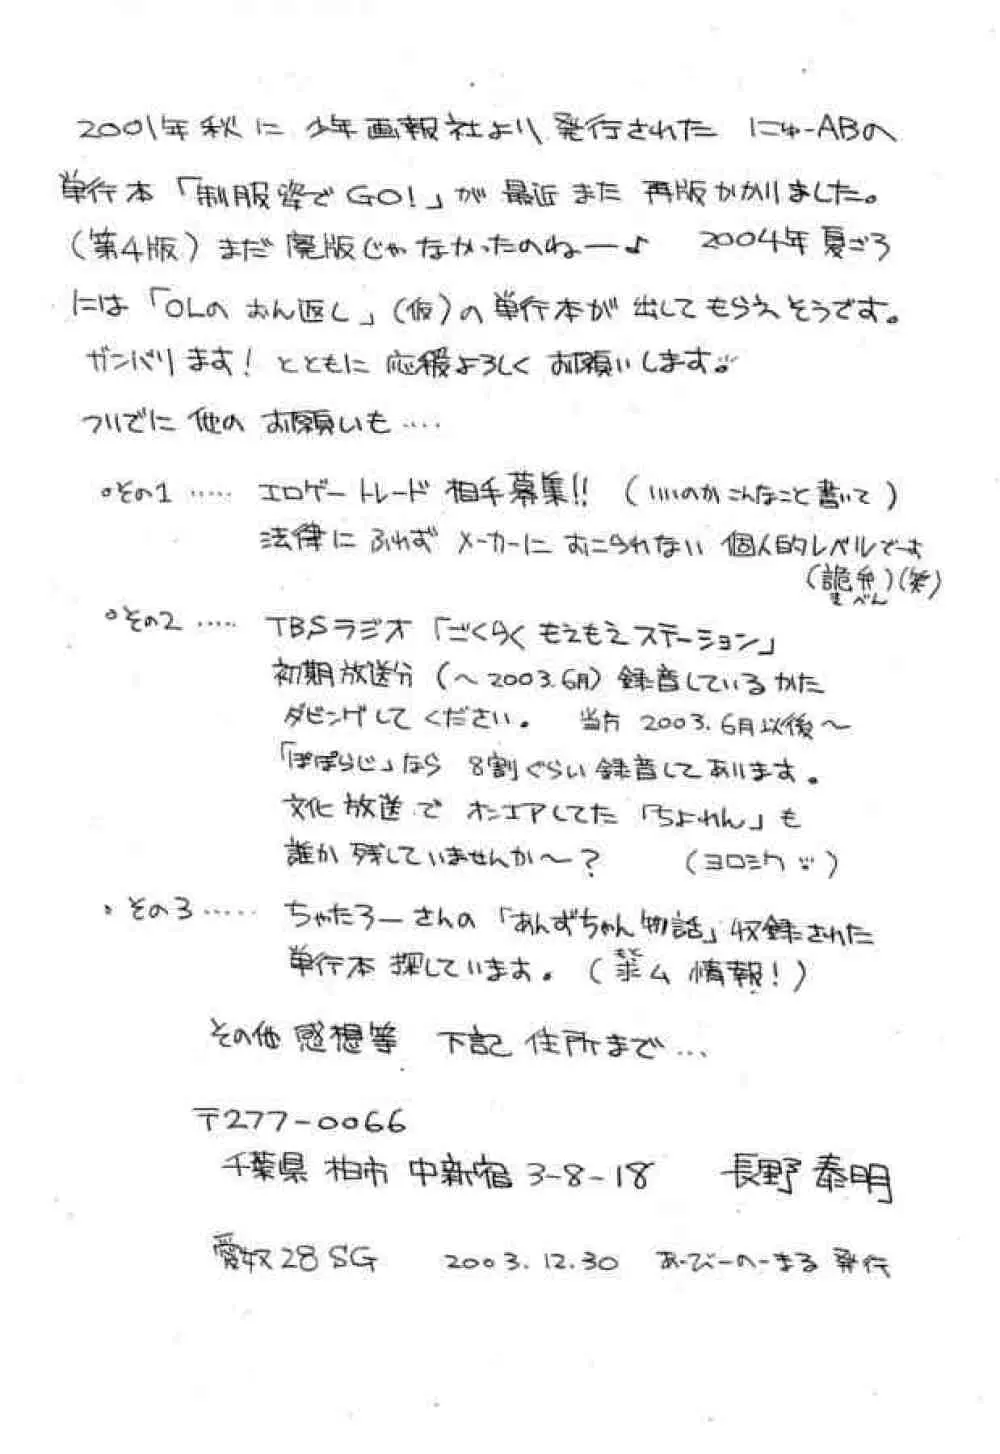 2001年秋に 少年画報社より 発行された にゅーABの
単行本「制服姿でGO!」が 最近 また 再版かかりました。
(第4版) まだ 廃版じゃなかったのねー♪ 2004年 夏ごろ
には「OLの おん返し」(仮)の 単行本が 出して もらえそうです。
ガンバリます! とともに 応援よろしく お願いします。
ついでに 他の お願いも‥‥
°その1 ‥‥‥ エロゲー トレード 相手募集!! (いいのか こんなこと 書いて)
法律に ふれず メーカーに おこられない 個人的レベルでーす
(詭弁)(笑)
きべん
°その2 ‥‥‥ TBSラジオ「ごくらく もえもえ ステーション」
初期放送分 (〜2003.6月) 録音しているかた
ダビングして ください。 当方 2003.6月以後〜
「ぽぽらじ」なら 8割ぐらい 録音して あります。
文化放送で オンエアしてた「ちよれん」も
誰か 残していませんか〜? (ヨロシク)
°その3 ‥‥‥ ちゃたろーさんの「あんずちゃん物話」収録された
単行本 探しています。 (求ム 情報!)
もと
その他 感想等 下記 住所まで…
〒277-0066
千葉県 柏市 中新宿 3-8-18 長野 泰明
愛奴28SG 2003.12.30 あーびーのーまる 発行